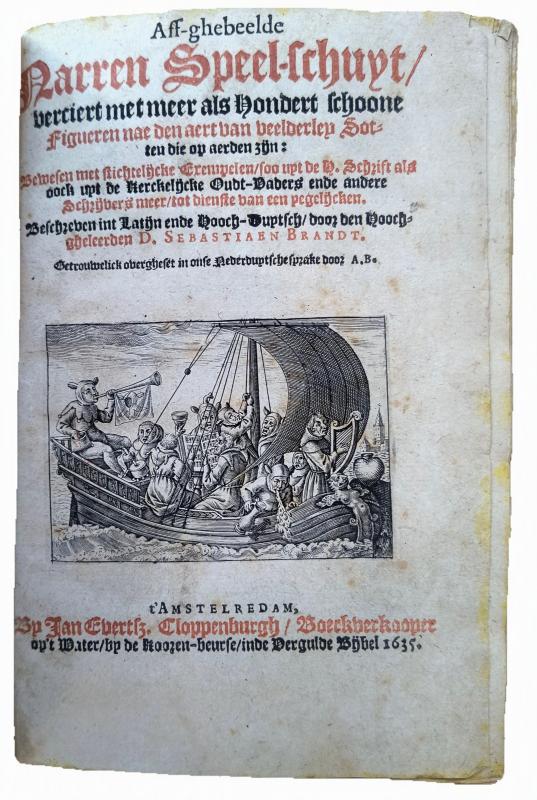 Aff-ghebeelde
Narren Speel-schuyt/
verciert met meer als Hondert schoone
Figueren nae den aert van veelderley Sot-
ten die op aerden zijn:
Bewesen met stichtelijcke Exempelen/soo uyt de H. Schrift als
oock uyt de Kerckelijcke Oudt-Vaders ende andere
Schrijvers meer/tot dienste van een yegelijcken.
Beschreven int Latijn ende Hooch-Duytsch/door den Hooch-
gheleerden D. SEBASTIAEN BRANDT.
Getrouwelick overgheset in onse Nederduytsche sprake door A.B.
t'AMSTELREDAM,
By Jan Evertsz. Cloppenburgh / Boeckverkooper
op't Water/by de Koozen-beurse/inde Vergulde Bijbel 1635.